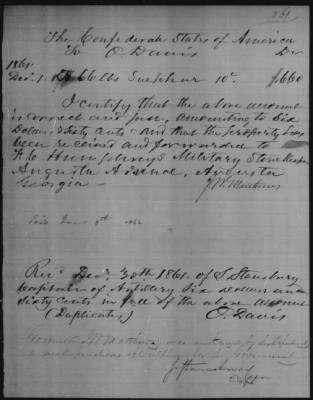 The Confederate States of America
To O. Davis Dr
1861.
Dec. 1. To 66 lbs Sulphur 10c. $6.60
I certify that the above account
is correct and just, amounting to Six
Dollars & Sixty cents - and that the property has
been received and forwarded to
Humphreys Military Store Keeper
Augusta Arsenal, Augusta
Georgia -
Matthews
Paid 1862
Recd Decr 30th 1861. of S Stansbury
Captain of Artillery Six dollars and
Sixty cents in full of the above account
(Duplicates) O. Davis
was
to make purchases